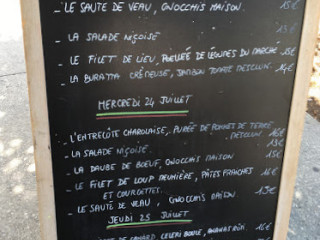 LE SAUTÉ DE VEAU, GNOCCHIS MAISON. 15€
- LA SALADE NIÇOISE 13€
- LE FILET DE LIEU, POELLÉE DE LÉGUMES DU MARCHÉ 15€
- LA BURATTA CRÉMEUSE, JAMBON TOMATE 14€
MERCREDI 24 JUILLET
- L'ENTRECÔTE CHAROLAISE, PURÉE DE POMMES DE TERRE 16€
- LA SALADE NIÇOISE. 13€
- LA DAUBE DE BOEUF, GNOCCHIS MAISON 15€
- LE FILET DE LOUP MEUNIÈRE, PÂTES FRAICHES 16€
ET COURGETTES
- LE SAUTÉ DE VEAU, GNOCCHIS MAISON 15€
JEUDI 25 JUILLET
DE CANARD, CELERI BOULE, 16€